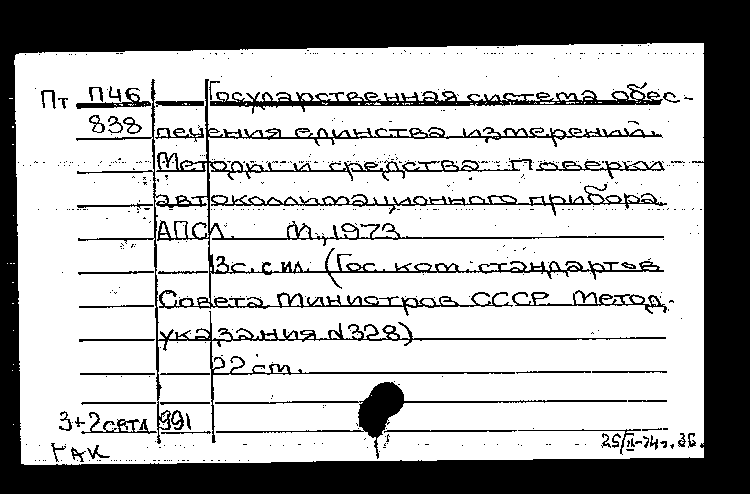 Пт П46 Государственная система обес-
838 печения единства измерений.
Методы и средства поверки
автоколлимационного прибора
АПСЛ. М., 1973
13с. с ил. (Гос. ком. стандартов
Совета Министров СССР. Метод.
указания N328)
22 cm.
3+2 991
ГАК